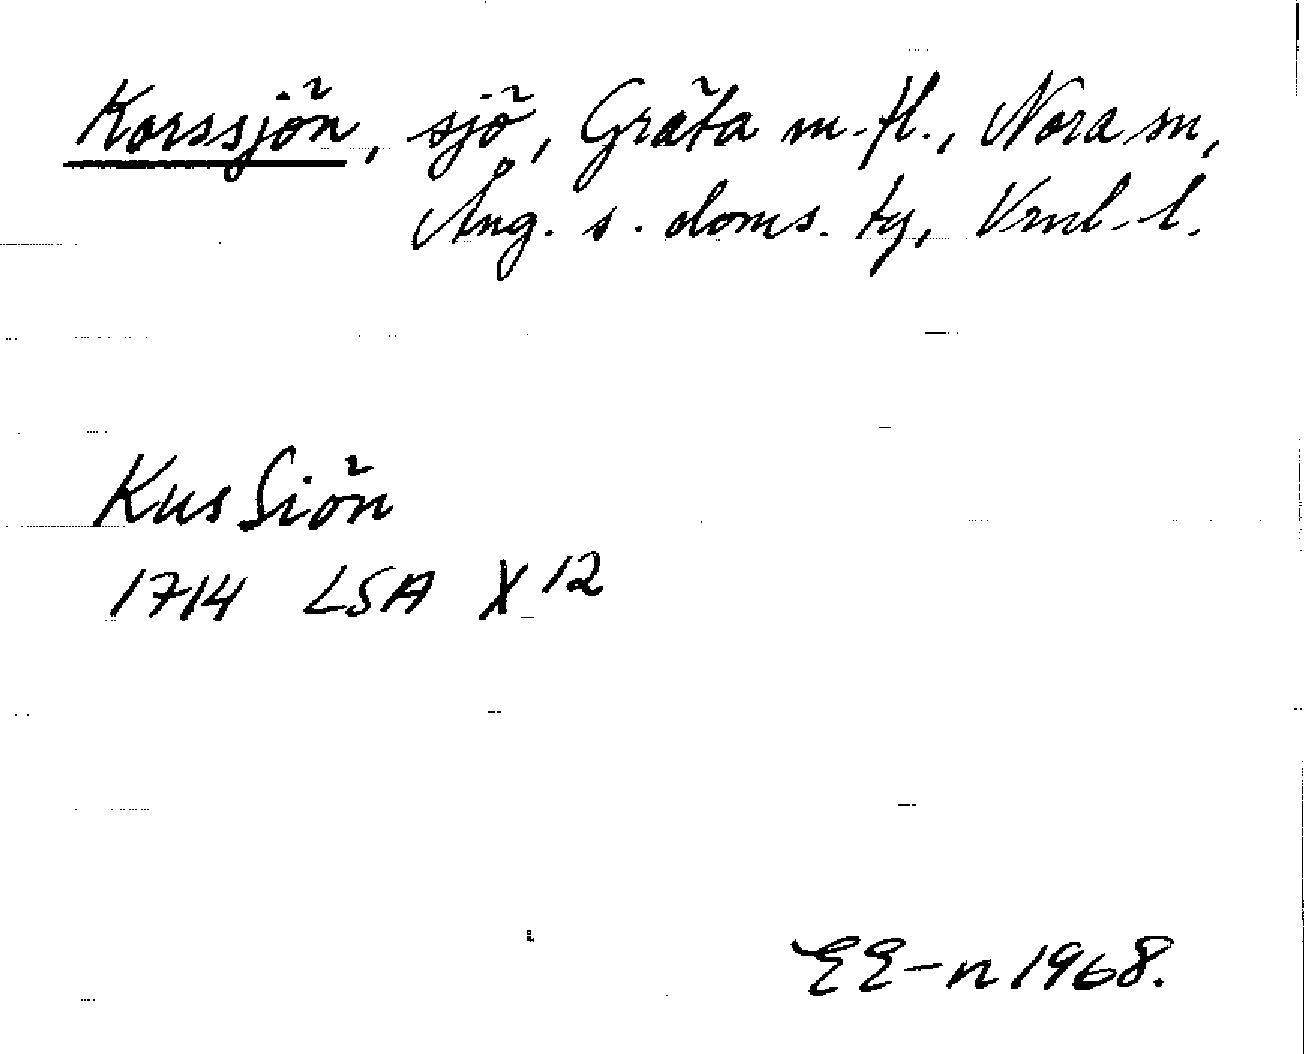 Korssjön, sjö, Gräta m. fl., Nora sn,
Ång. s. doms. tg, Vrml. l.
Kus Siön
1714 LSA X 12
EE-n 1968.